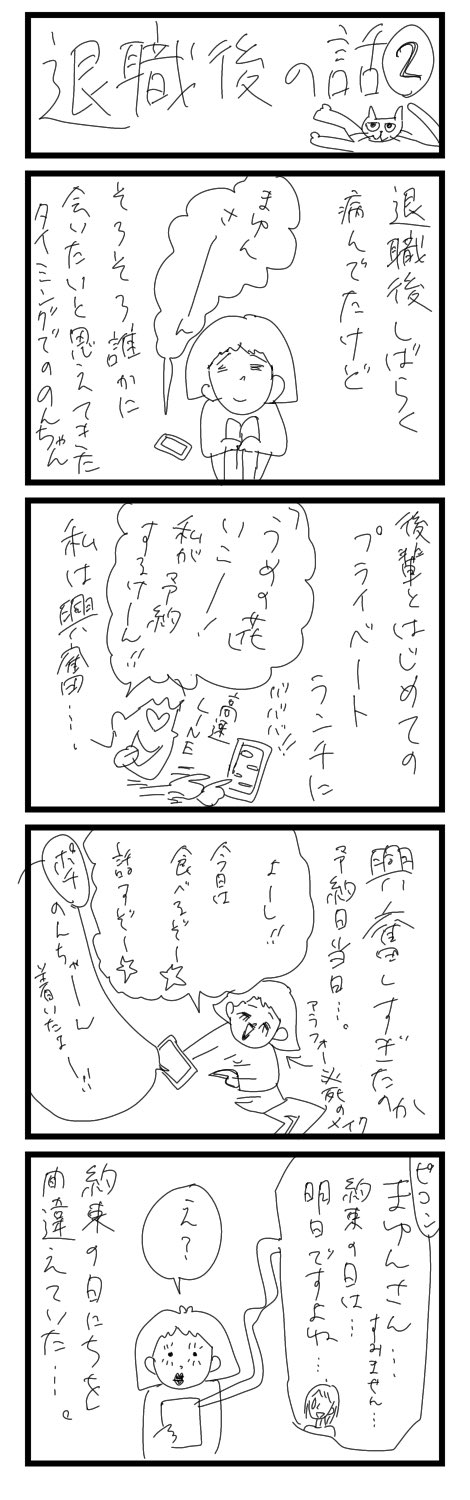 退職後の話②
退職後しばらく
病んでたけど
まゆん
さーん
そろそろ誰かに
会いたいと思えてきた
タイミングでののんちゃん
後輩とはじめての
プライベート
ランチに
「うめの花」
いこー!
私が予約
するけーん!!
ババババ!!
高速
LINE
私は興奮…、
興奮しすぎたのか
予約日当日…。
アラフォー必死のメイク
よーし!!
今日は
食べるぞー☆
話すぞー☆
ポチ
のんちゃーん
着いたよー!!
ピコン
まゆんさん…
すみません…
約束の日は…
明日ですよね…
え?
約束の日にちを
間違えていた…。